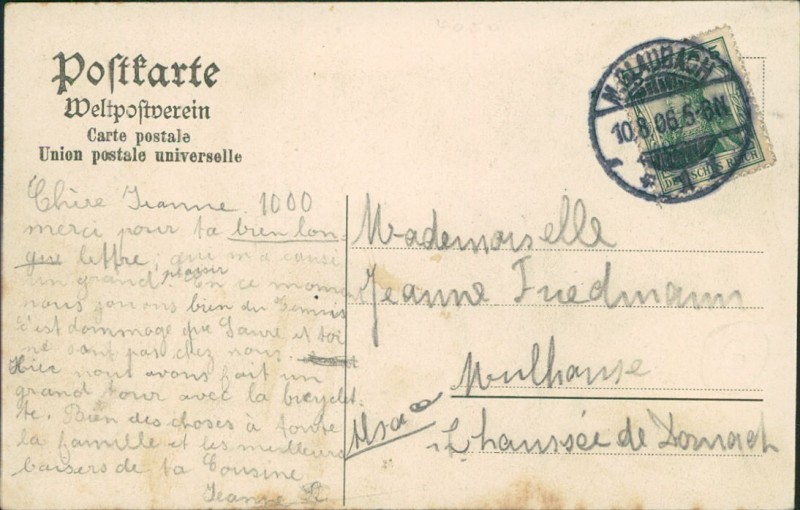 Postkarte
Weltpostverein
Carte postale
Union postale universelle
M. GLADBACH
10.8.06.5-6N
5
DEUTSCHES REICH
Chère Jeanne 1000
merci pour ta bien lon-
gue lettre, qui m'a causé
un grand plaisir En ce moment
nous jouons bien du Tennis
c'est dommage que Laure et toi
ne sont pas chez nous.
Hier nous avons fait un
grand tour avec la bicyclet-
te. Bien des choses à toute
la famille et les meilleurs
baisers de ta Cousine
Jeanne
Mademoiselle
Jeanne Friedmann
Mulhouse
Alsace
Chaussée de Dornach